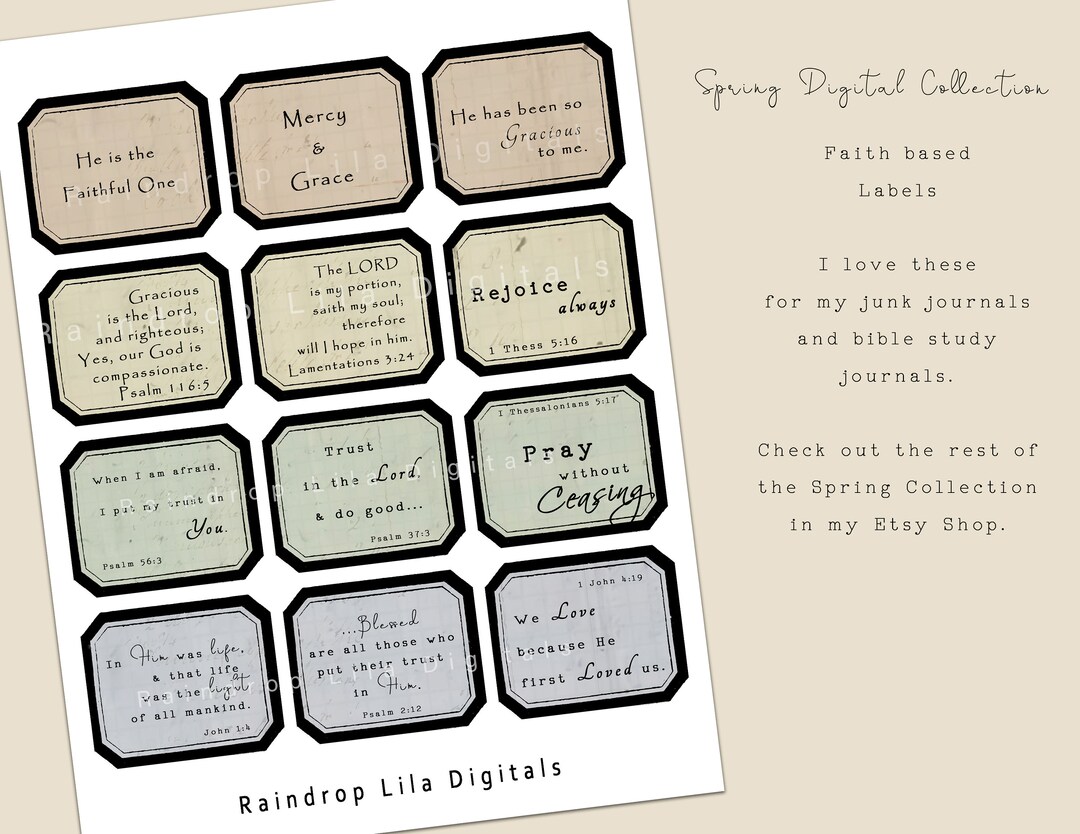 He is the
Faithful One
Mercy
&
Grace
He has been so
Gracious
to me.
Gracious
is the Lord,
and righteous;
Yes, our God is
compassionate.
Psalm 116:5
The LORD
is my portion,
saith my soul;
therefore
will I hope in him.
Lamentations 3:24
Rejoice
always
1 Thess 5:16
When I am afraid,
I put my trust in
You.
Psalm 56:3
Trust
in the Lord,
& do good...
Psalm 37:3
1 Thessalonians 5:17
Pray
without
Ceasing
In Him was life,
& that life
was the light
of all mankind.
John 1:4
...Blessed
are all those who
put their trust
in Him.
Psalm 2:12
1 John 4:19
We Love
because He
first Loved us.
Raindrop Lila Digitals
Raindrop Lila Digitals
Raindrop Lila Digitals
Raindrop Lila Digitals
Raindrop Lila Digitals
Spring Digital Collection
Faith based
Labels
I love these
for my junk journals
and bible study
journals.
Check out the rest of
the Spring Collection
in my Etsy Shop.